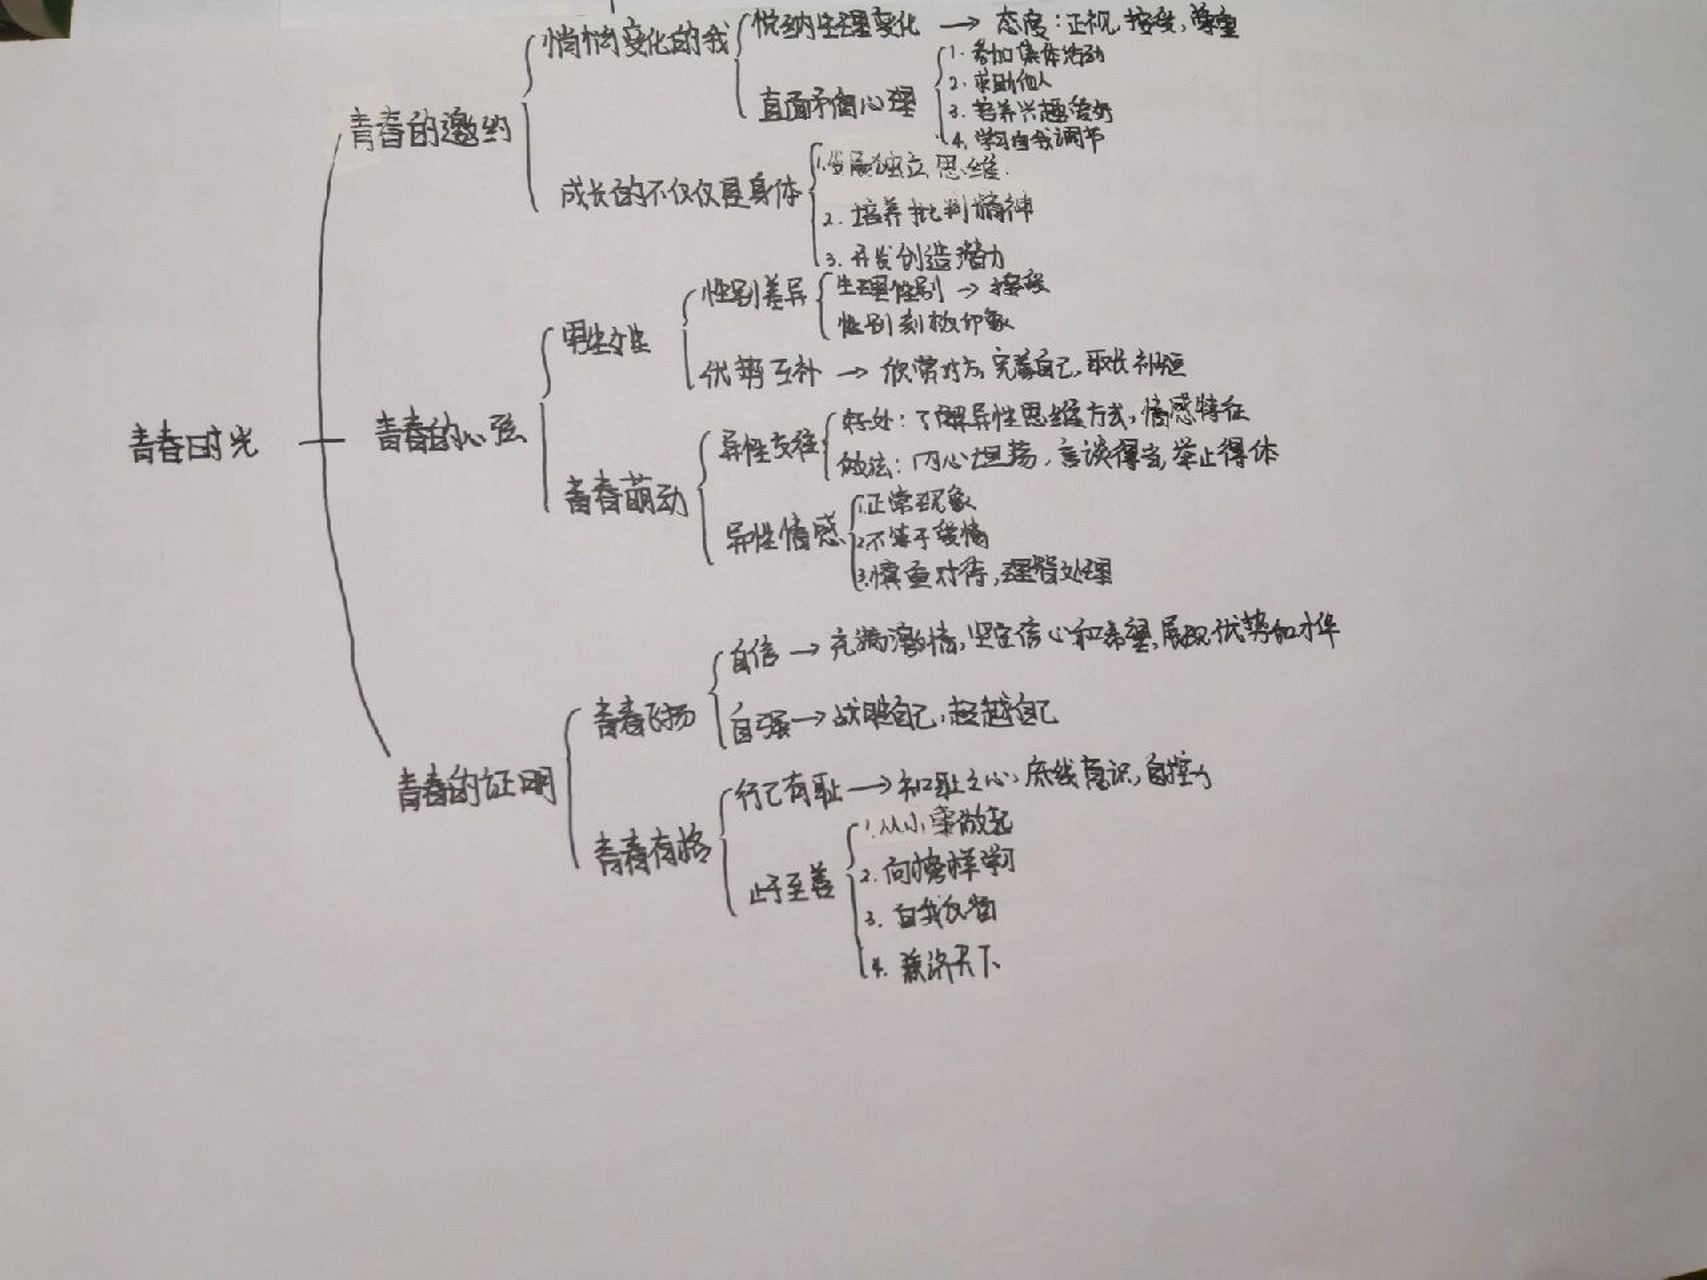 悄悄变化的我
悦纳生理变化 → 态度：正视，接受，尊重
直面矛盾心理
1. 参加集体活动
2. 求助他人
3. 培养兴趣爱好
4. 学习自我调节
青春的邀约
成长的不仅仅是身体
1. 发展独立思维.
2. 培养批判精神
3. 开发创造潜力
性别差异
生理性别 → 接受
性别刻板印象
男生女生
优势互补 → 欣赏对方，完善自己，取长补短
青春时光
青春的心弦
异性交往
好处：了解异性思维方式，情感特征
做法：内心坦荡，言谈得当，举止得体
青春萌动
异性情感
1.正常现象
2.不等于爱情
3.慎重对待，理智处理
自信 → 充满激情，坚定信心和希望，展现优势和才华
青春飞扬
自强 → 战胜自己，超越自己
青春的证明
行己有耻 → 知耻之心，底线意识，自控力
青春有格
止于至善
1.从小事做起
2. 向榜样学习
3. 自我反省
4. 兼济天下